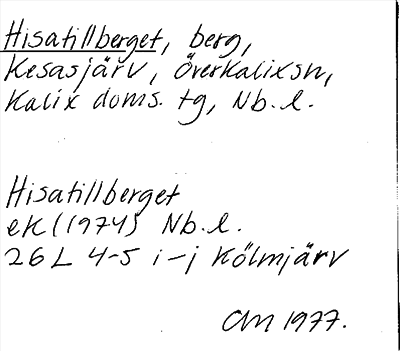 Hisatillberget, berg,
Kesasjärv, Överkalixsn,
Kalix doms. tg, Nb. l.
Hisatillberget
ek (1974) Nb. l.
26 L 4-5 i-j Kölmjärv
CM 1977.